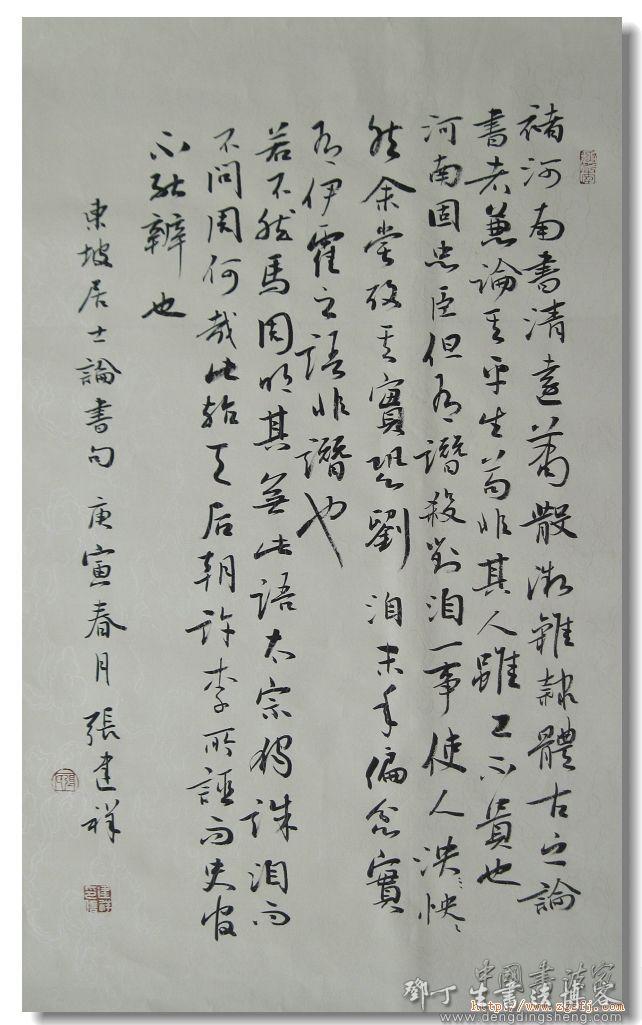 褚河南書清遠蕭散微雜隸體古之論
書者兼論其平生苟非其人雖工不貴也
河南固忠臣但有譖殺劉洎一事使人怏怏
然余嘗考其實恐劉洎末年偏忿實
有伊霍之語非譖也
若不然馬周明其無此語太宗獨誅洎而
不問周何哉此殆天后朝許李所誣而史官
不能辨也
東坡居士論書句 庚寅春月 張建祥
中國書法家
http://www.zgsfj.com
鄧丁生書法博客
www.dengdingsheng.com